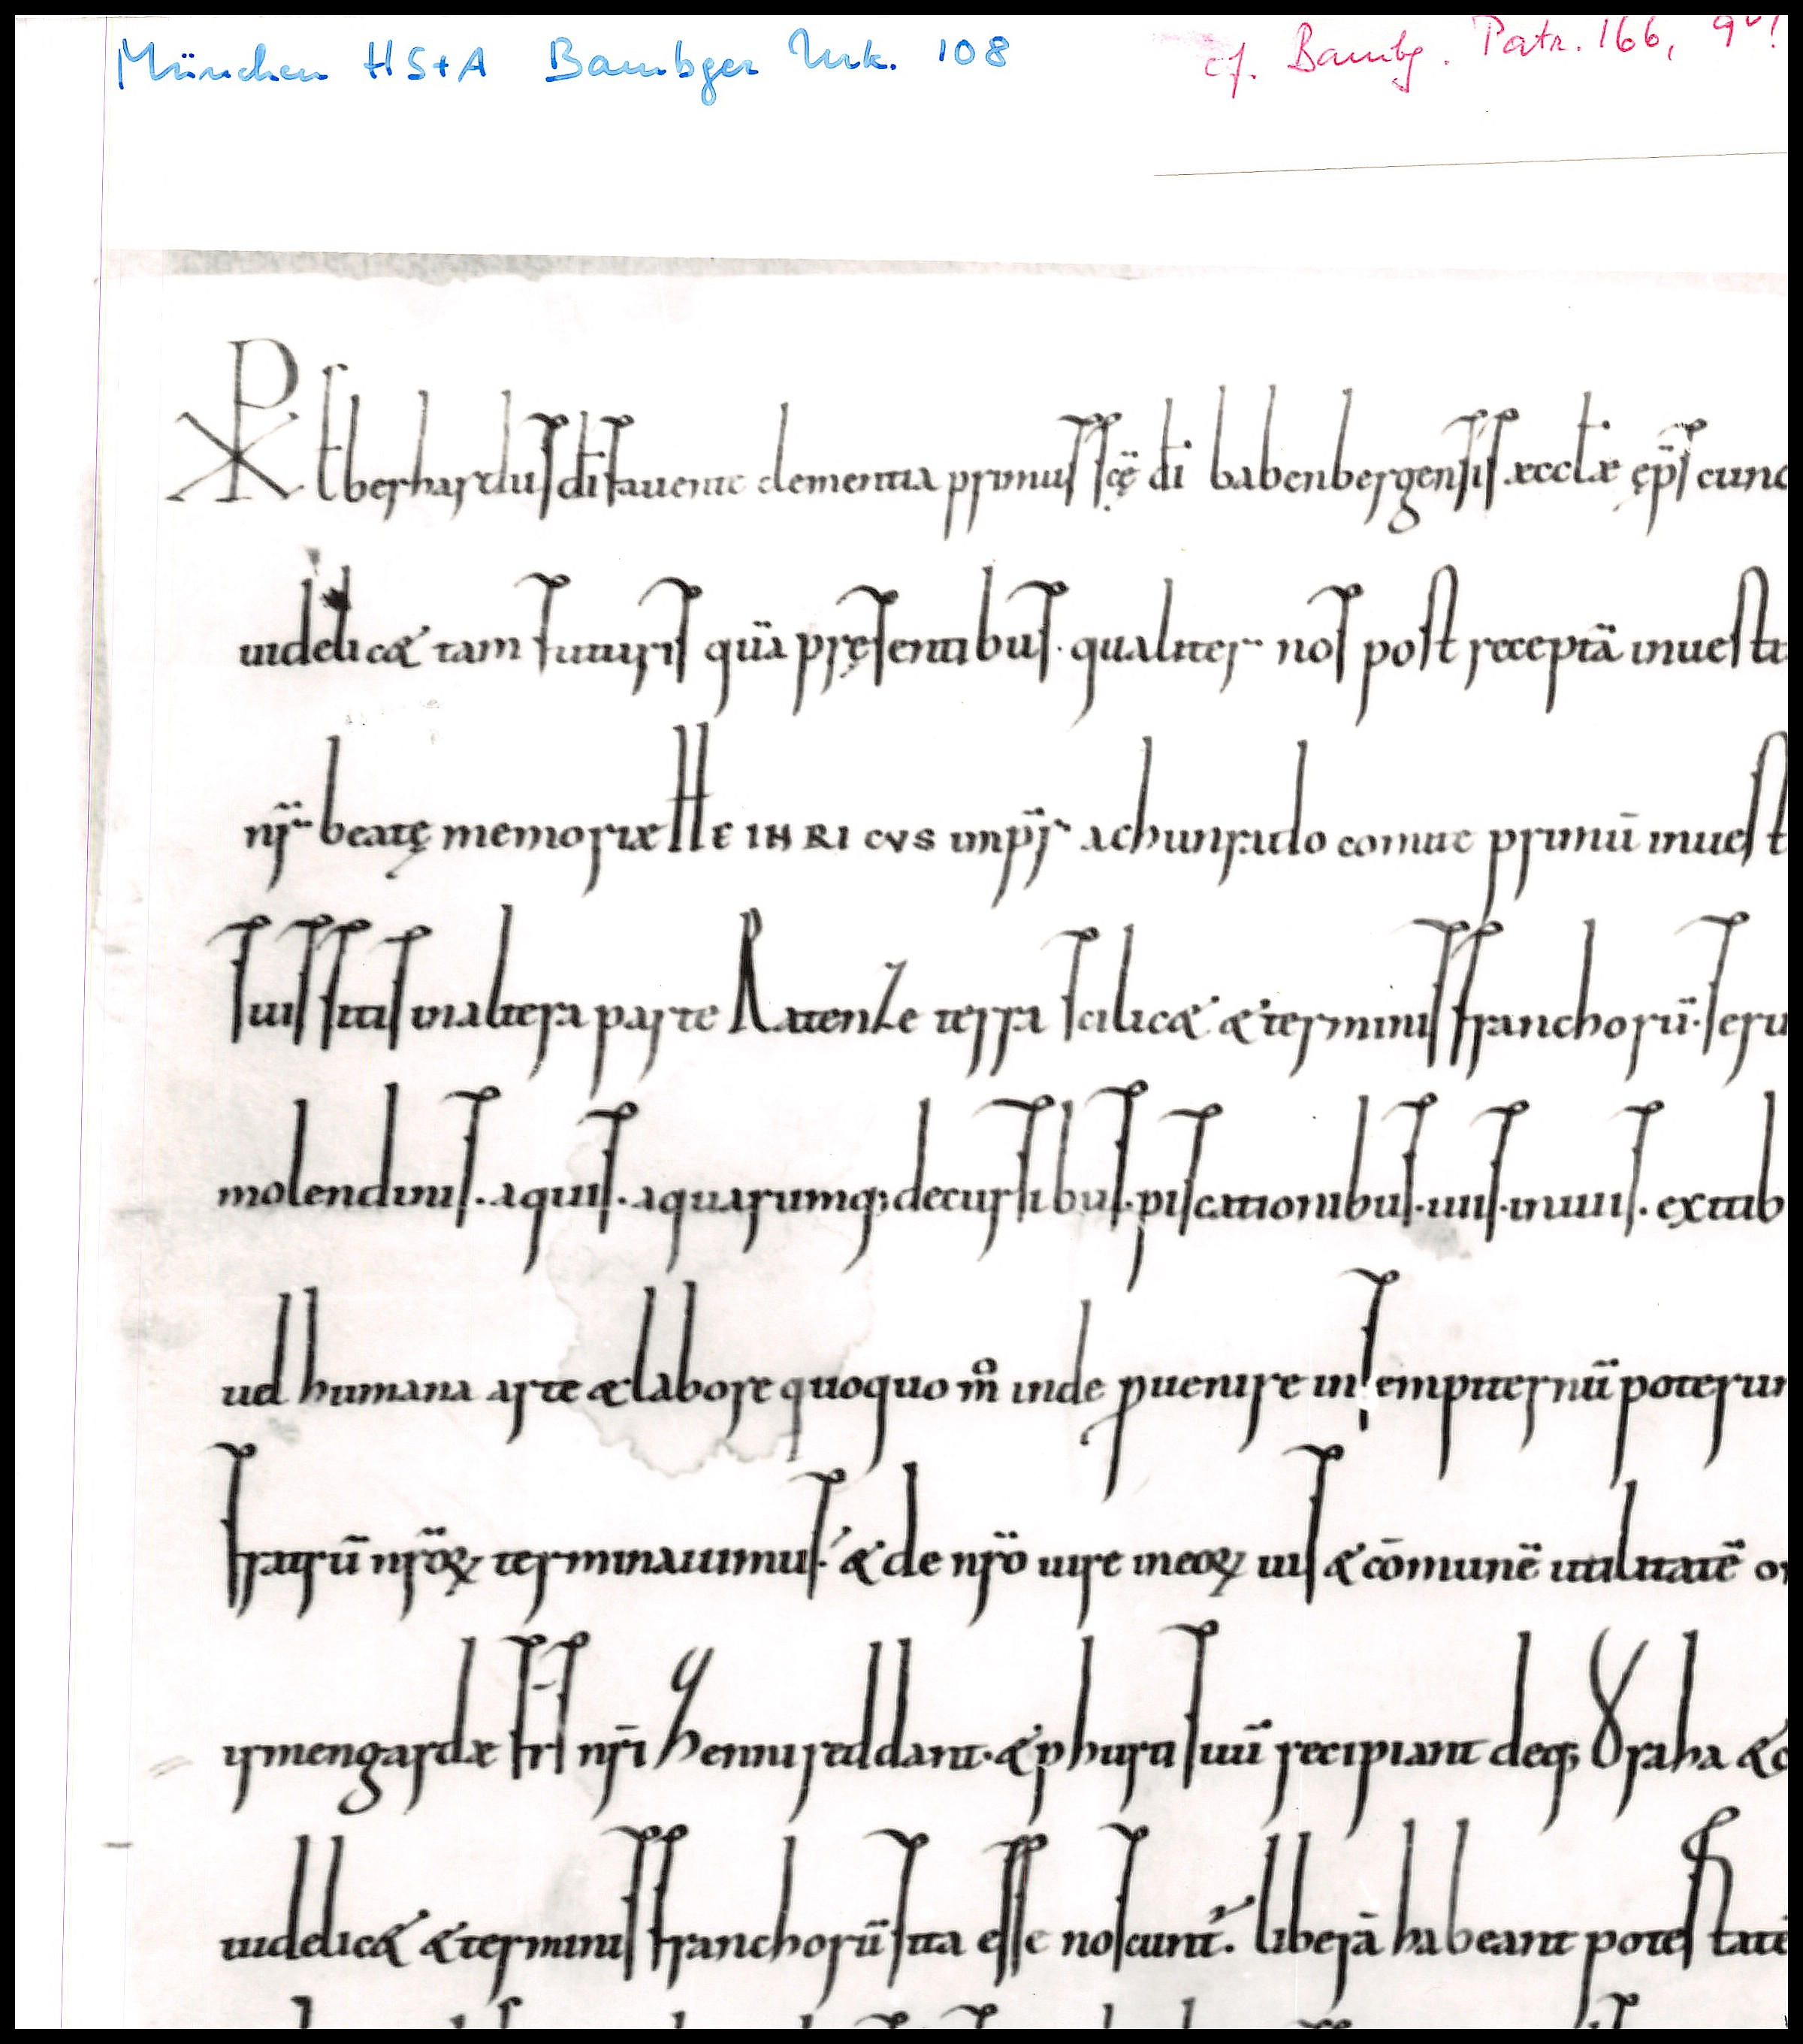 München HStA Bambger Urk. 108
cf. Bambg. Patr. 166, 9v!
☧ Eberhardus dī fauente clementia primus scę dī babenbergensis æcclæ ęps cunc
uidelicet tam futuris quā pręsentibus. qualiter nos post receptā inuesti
nr̄ beatę memoriæ HEINRICVS impr̄ a chunrado comite primū inuest
suis sitis in altera parte Ratenze terra scilicet & terminis francho rū. seru
molendinis. aquis. aquarumq; decursibus. piscationibus. uiis. inuiis. exitib
ud humana arte & labore quoquo m̊ inde puenire in sempiternū poterun
fratrū nrōꝝ terminauimus. & de nrō iure in eoꝝ ius & cōmunē utilitatē
yrmengardæ frs nrī hennī reddant. & p hurti suū recipiant deq; Vraha &
uidelicet & terminis franchorū sita esse noscunt. liberā habeant potestatē